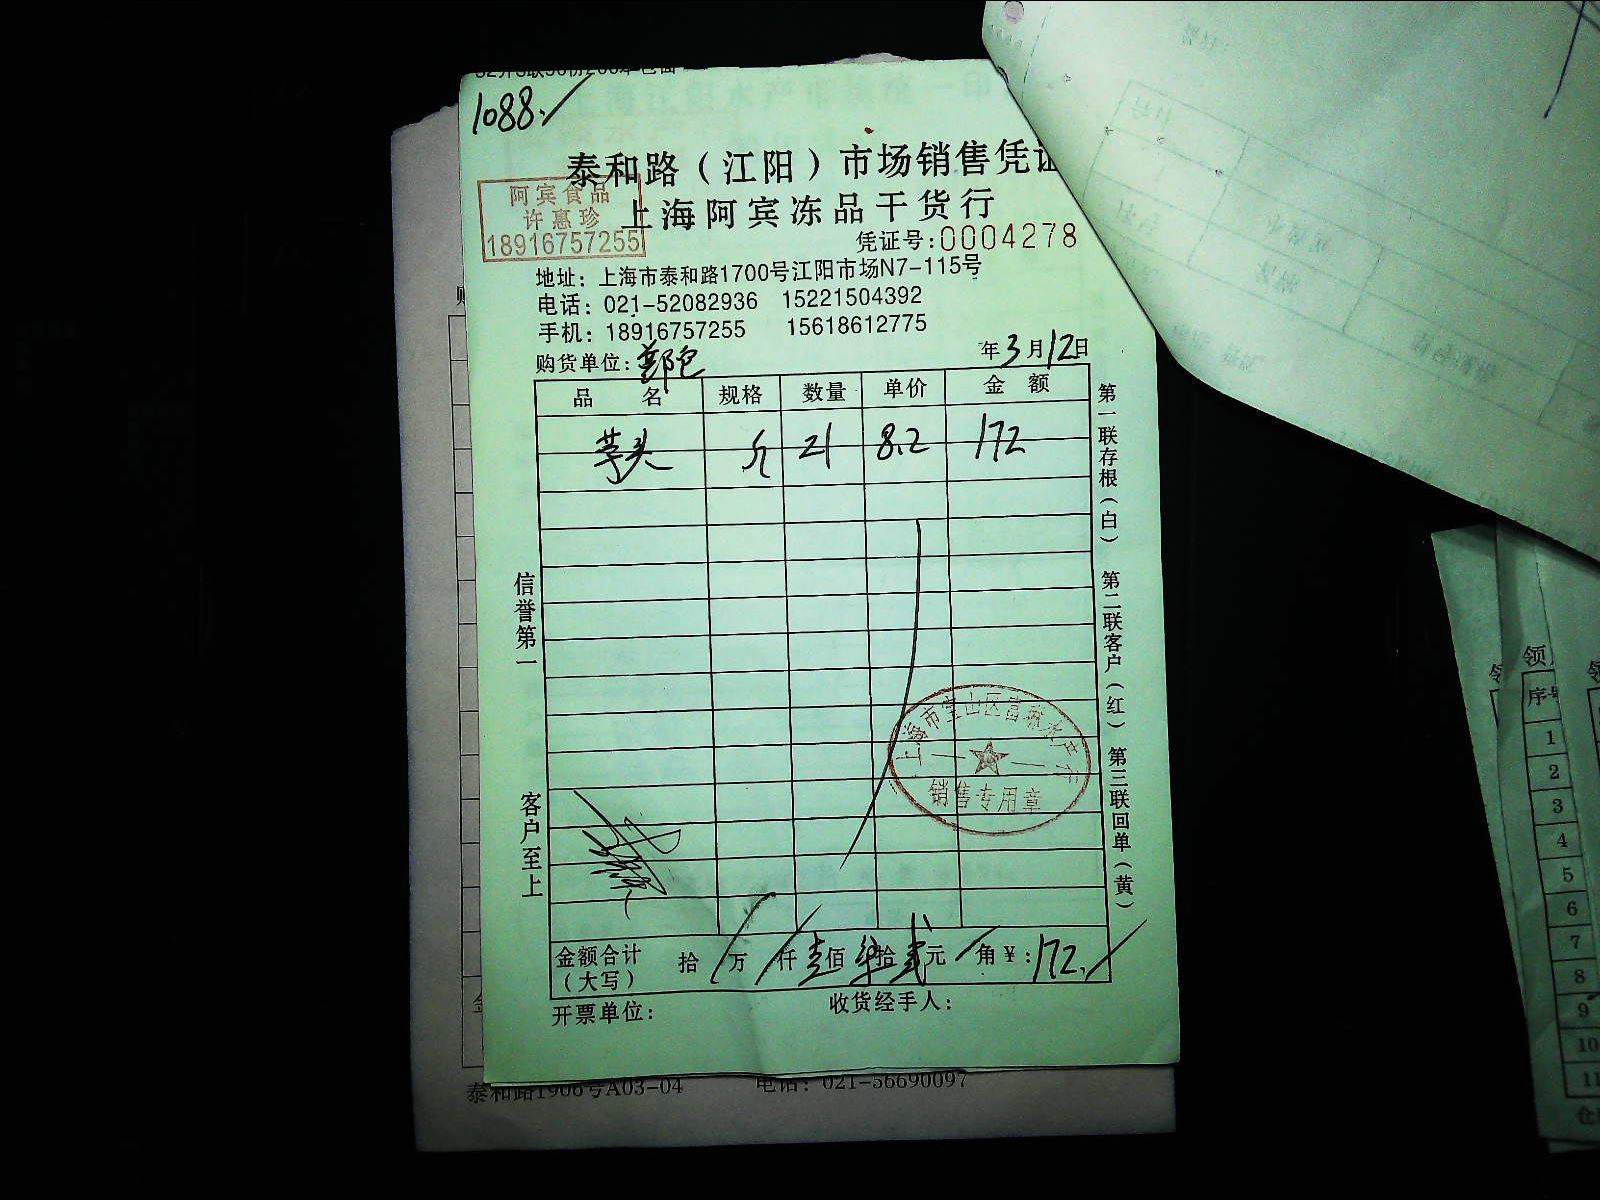 1088.
泰和路（江阳）市场销售凭证
上海阿宾冻品干货行
阿宾食品
许惠珍
18916757255
凭证号:0004278
地址：上海市泰和路1700号江阳市场N7-115号
电话：021-52082936 15221504392
手机：18916757255 15618612775
购货单位:
年3月12日
品 名 规格 数量 单价 金 额
芋头 斤 21 8.2 172
第一联存根（白） 第二联客户（红） 第三联回单（黄）
信誉第一
客户至上
上海市宝山区
水产行
销售专用章
金额合计（大写） 拾 万 仟壹佰柒拾贰元 角¥:172.
开票单位: 收货经手人:
泰和路1906号A03-04 电话: 021-56690097
领
序号
1
2
3
4
5
6
7
8
9
10
11